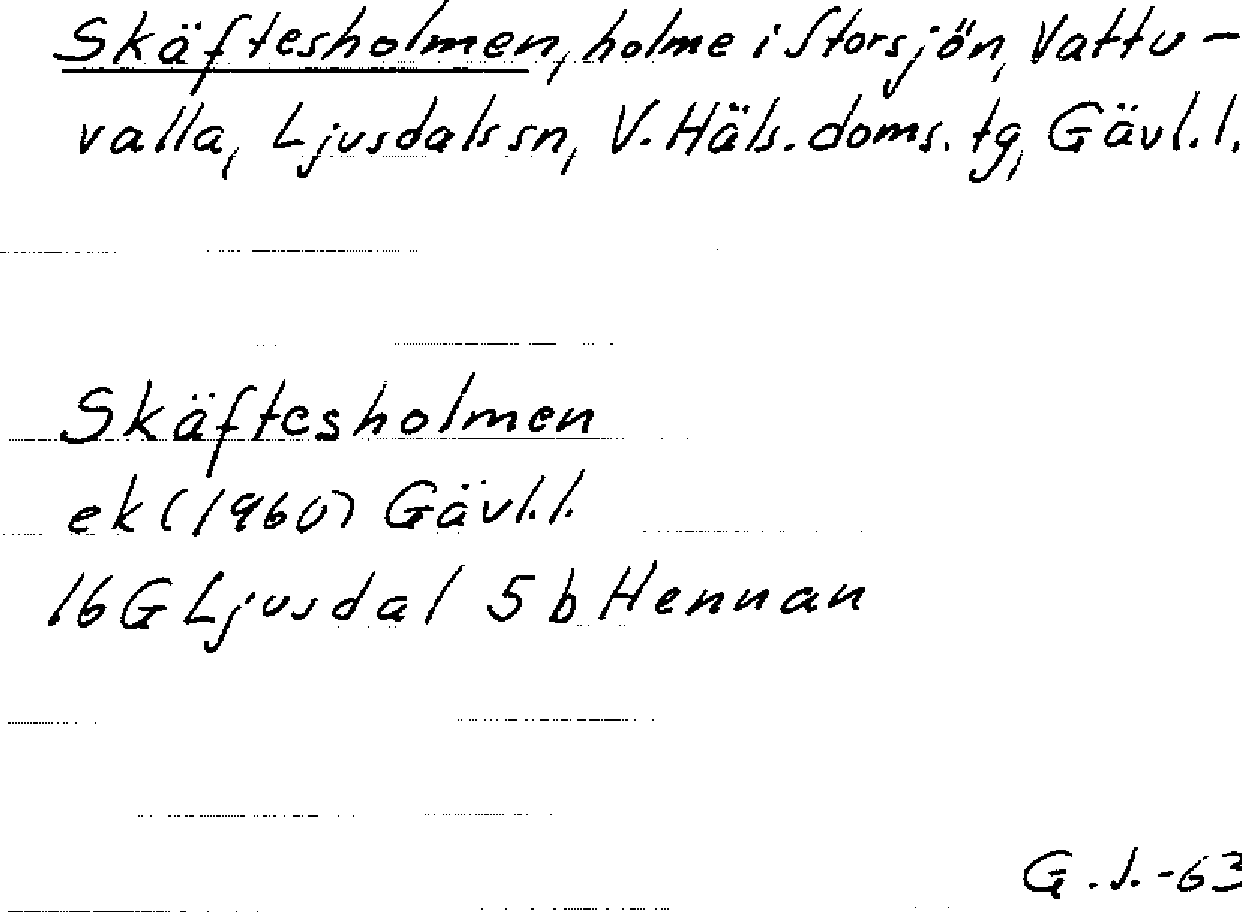 Skäftesholmen, holme i Storsjön, Vattu-
valla, Ljusdals sn, V. Häls. doms. tg, Gävl. l.
Skäftesholmen
ek (1960) Gävl. l.
16 G Ljusdal 5 b Hennan
G. J. -63